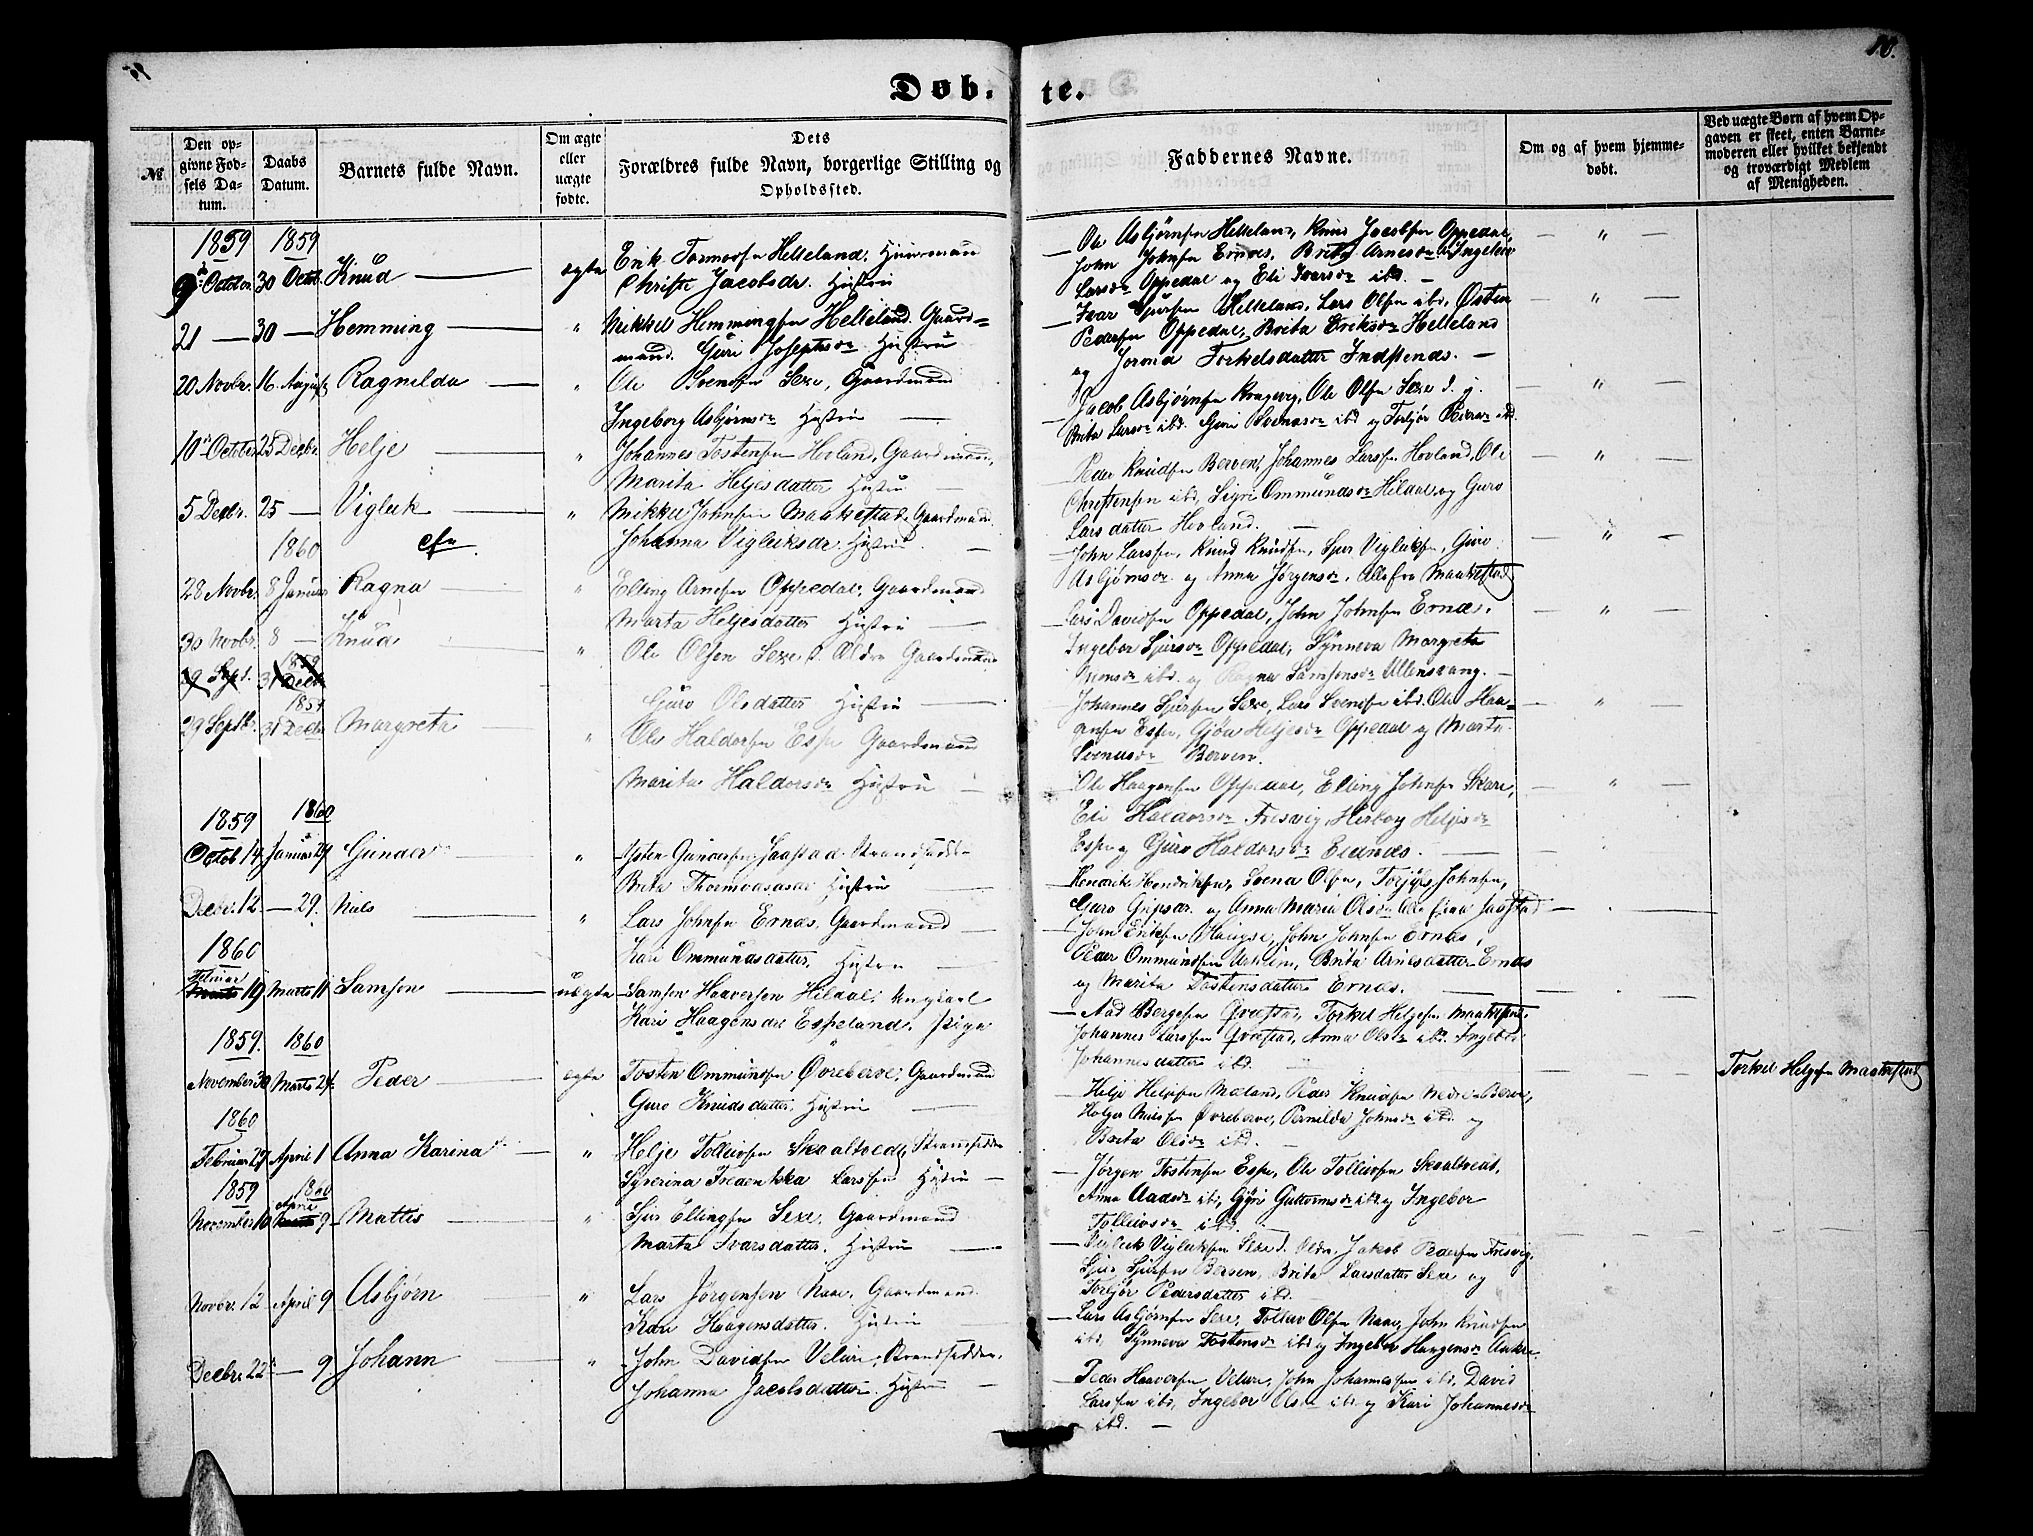 Døb. te.
10.
№
Den opgivne Fødsels Datum.
Daabs Datum.
Barnets fulde Navn.
Om ægte eller uægte fødte.
Dets Forældres fulde Navn, borgerlige Stilling og Opholdssted.
Faddernes Navne.
Om og af hvem hjemmedøbt.
Ved uægte Børn af hvem Opgaven er skeet, enten Barnemoderen eller hvilket bekjendt og troværdigt Medlem af Menigheden.
1859 1859
9 October 30 Octob. Knud — ægte Erik Tormodsen Helleland, Huusmand
Christi Jacobsdr. Hustru
Ole Asbjørnsen Helleland, Knud Jacobsen Oppedal,
John Johnsen Ernæs, Brita Arnesdr Ingebor
Larsdr Oppedal og Eli Ivarsdr ibd. —
21 — 30 — Hemming — " Mikkel Hemmingsen Helleland Gaard=
mand. Guri Josephsdr Hustru
Ivar Sjursen Helleland, Lars Olsen ibd, Østen
Pedersen Oppedal, Brita Eriksdr Helleland
og Jorond Torkelsdatter Indstenæs. —
20 Novbr. 16 August Ragnilda — " Ole Svensen Sexe, Gaardmand
Ingeborg Asbjørnsdr Hustru —
Jacob Asbjørnsen Kragevig, Ole Olsen Sexe d. y.
Brita Larsdr ibd. Guri Svensdr ibd og Torbjør Pedersdr ibd.
10 October 25 Decbr. Helje — " Johannes Tostensen Hovland, Gaardmand,
Marita Heljesdatter Hustru —
Peder Knudsen Berven, Johannes Larssen Hovland, Ole
Christensen ibd, Sigri Ommundsdr Hildal og Guro
Larsdatter Hovland. —
5 Decbr. 25 — Vigleik — " Mikkel Johnsen Maakestad, Gaardmand
Johanna Vigleiksdr. Hustru —
John Larssen, Knud Knudsen, Sjur Vigleiksen, Guro
Asbjørnsdr og Anna Jørgensdr, Alle fra Maakestad
1860
28 Novbr. 8 Januar Ragna — " Elling Arnesen Oppedal, Gaardmand
Marta Heljesdatter Hustru —
Lars Davidsen Oppedal, John Johnsen Ernæs,
Ingebor Sjursdr Oppedal, Synneva Margreta
Monsdr ibd. og Ragna Samsonsdr Ullensvang. —
30 Novbr. 8 — Knud — " Ole Olsen Sexe d. Ældre Gaardmand
29 Sept. 31 Decbr 1859
Guro Olsdatter Hustru —
Johannes Sjursen Sexe, Lars Svensen ibd. Ole Haa=
gensen Espe, Gjøa Heljesdr Oppedal og Marta
Svensdr Berven.
1859
29 Septbr. 31 Decbr Margreta — " Ole Haldorsen Espe Gaardmand
Marita Haldorsdr Hustru —
Ole Haagensen Oppedal, Elling Johnsen Skare,
Eli Haldorsdr Fresvig, Herbor Heljesdr
Espe og Guro Haldorsdr Eidnæs. —
1859 1860
Octob 14 Januar 29 Gunder — " Østen Gundersen Jaastad Strandsidder
Brita Thormodsdr Hustru —
Hendrik Hendriksen, Svend Olsen, Torjuls Johnsen,
Guro Gripsdr. og Anna Maria Olsdr Alle fra Jaastad
Decbr. 12 — 29. Niels — " Lars Johnsen Ernæs, Gaardmand —
Kari Ommundsdatter. Hustru —
John Eriksen Haugse, John Johnsen Ernæs,
Peder Ommundsen Urheim, Brita Arnesdatter Ernæs
og Marita Tostensdatter Ernæs. —
1860
Februar 19 Marts 11 Samson — uægte Samson Haaversen Hildal, Ungkarl
Kari Haagensdr Espeland, Pige
Aad Bergesen Qvæstad, Torkel Helgesen Maakestad,
Johannes Larssen Qvæstad, Anna Olsdr ibd. Ingebor
Johannesdatter ibd.
Torkel Helgesen Maakestad
1859. 1860
November 30 Marts 29. Peder — ægte Tosten Ommundsen Øvreberve, Gaardmand
Guro Knudsdatter. Hustru —
Helje Heljesen Mæland, Peder Knudsen Nedre Berve,
Holger Nilssen Øvreberve, Pernilda Johnsdr ibd og
Brita Olsdr ibd. —
1860
Februar 27 April 1 Anna Karina — " Helje Tolleivsen Skaaltvedt, Strandsidder
Syverina Fredrikka Larssen Hustru —
Jørgen Tostensen Espe, Ole Tolleivsen Skaaltvedt,
Anna Aadsdr ibd, Gyri Guttormsdr ibd og Ingebor
Tolleivsdr ibd. —
1859 1860
November 10 April 9 Mattis — " Sjur Ellingsen Sexe, Gaardmand
Marta Ivarsdatter. Hustru —
Vigleik Vigleiksen Sexe d. Ældre, Jakob Pedersen Fresvig,
Sjur Sjursen Berven, Brita Larsdatter Sexe og
Torbjør Pedersdatter ibd. —
Novbr. 12 April 9 Asbjørn — " Lars Jørgensen Naae, Gaardmand.
Kari Haagensdatter. Hustru —
Lars Asbjørnsen Sexe, Tolleiv Olsen Naae, John Knudsen
ibd, Synneva Tostensdr ibd og Ingebor Haagensdr
Decbr. 22 — 9 Johann — " John Davidsen Velure, Strandsidder.
Johanna Jacobsdatter. Hustru —
Peder Haaversen Velure, John Johannessen ibd, David
Larssen ibd, Ingebor Olsdr ibd og Kari Johannesdr
ibd. —